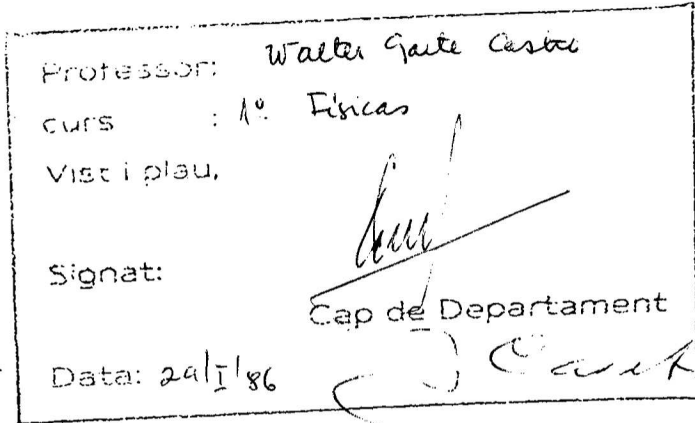 Professor: Walter Garte Castre
curs : 1º Físicas
Vist i plau,
Signat:
Cap de Departament
Data: 29/I/86